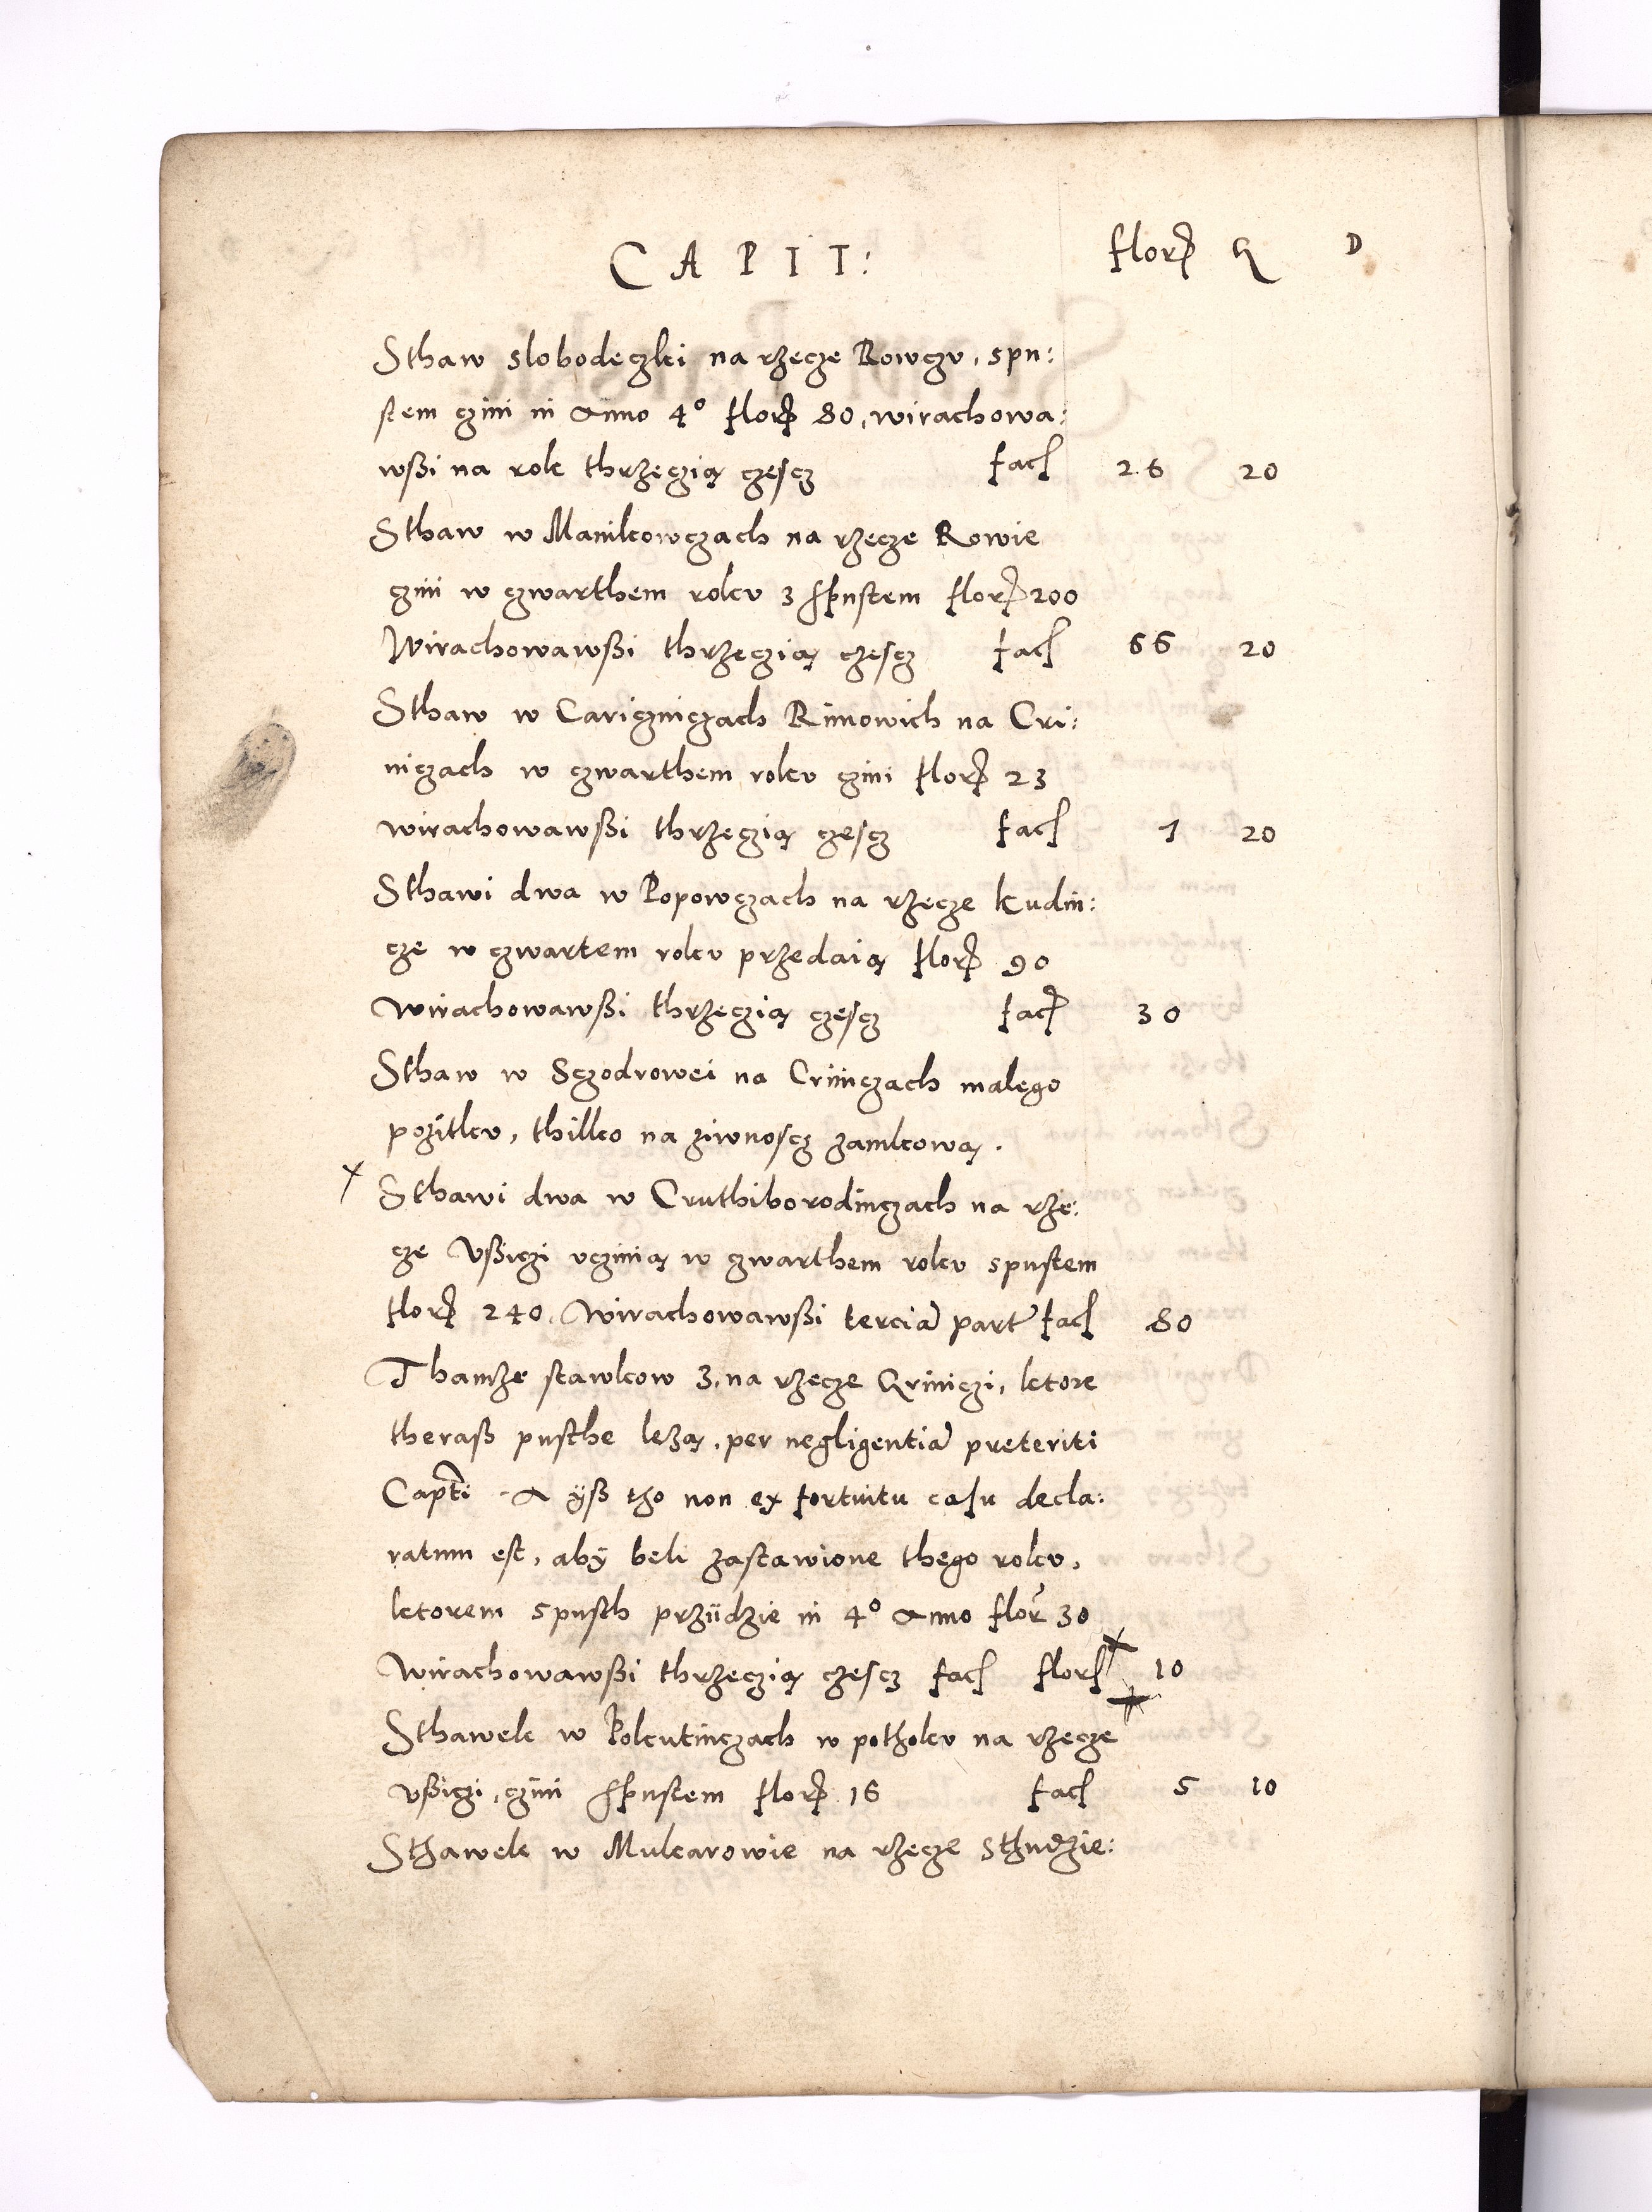 CAPIT: florῥ G D
Sthaw slobodeczki na rzecze Rowczv, spu:
stem czini in Anno 4° florῥ 80, wirachowa:
wßi na rok thrzeczią częscz facſ 26 20
Sthaw w Manikowczach na rzecze Rowie
czini w czwarthem rokv z spustem florῥ 200
Wirachowawßi thrzeczią częscz facſ 66 20
Sthaw w Cariczniczach Rimowich na Cri:
niczach w czwarthem rokv czini florῥ 23
wirachowawßi thrzeczią częscz facſ 1 20
Sthawi dwa w Popowczach na rzecze kudin:
cze w czwartem rokv przedaią florῥ 90
Wirachowawßi thrzeczią częscz facῥ 30
Sthaw w Sczodrowei na Criniczach małego
pozitkv, thilko na ziwnoscz zamkową.
+ Sthawi dwa w Cruthiborodinczach na rze:
cze Vßiczi vczinią w czwarthem rokv spustem
florῥ 240. Wirachowawßi tercia͂ part͂ facſ 80
Thamże stawkow 3. na rzecze Criniczi, ktore
theraß pusthe leżą, per negligentia͂ preteriti
Capt͂i. A yß tho non ex fortuitu casu decla:
ratum est, abÿ beli zastawione thego rokv,
ktorem spusth przÿdzie in 4° Anno flor͂ 30
Wirachowawßi thrzeczią częscz facſ florſ 10
Sthawek w Pokutinczach w pothokv na rzecze
vßiczi, czini spustem florῥ 16 facſ 5 10
Sthawek w Mukarowie na rzecze Sthudzie: